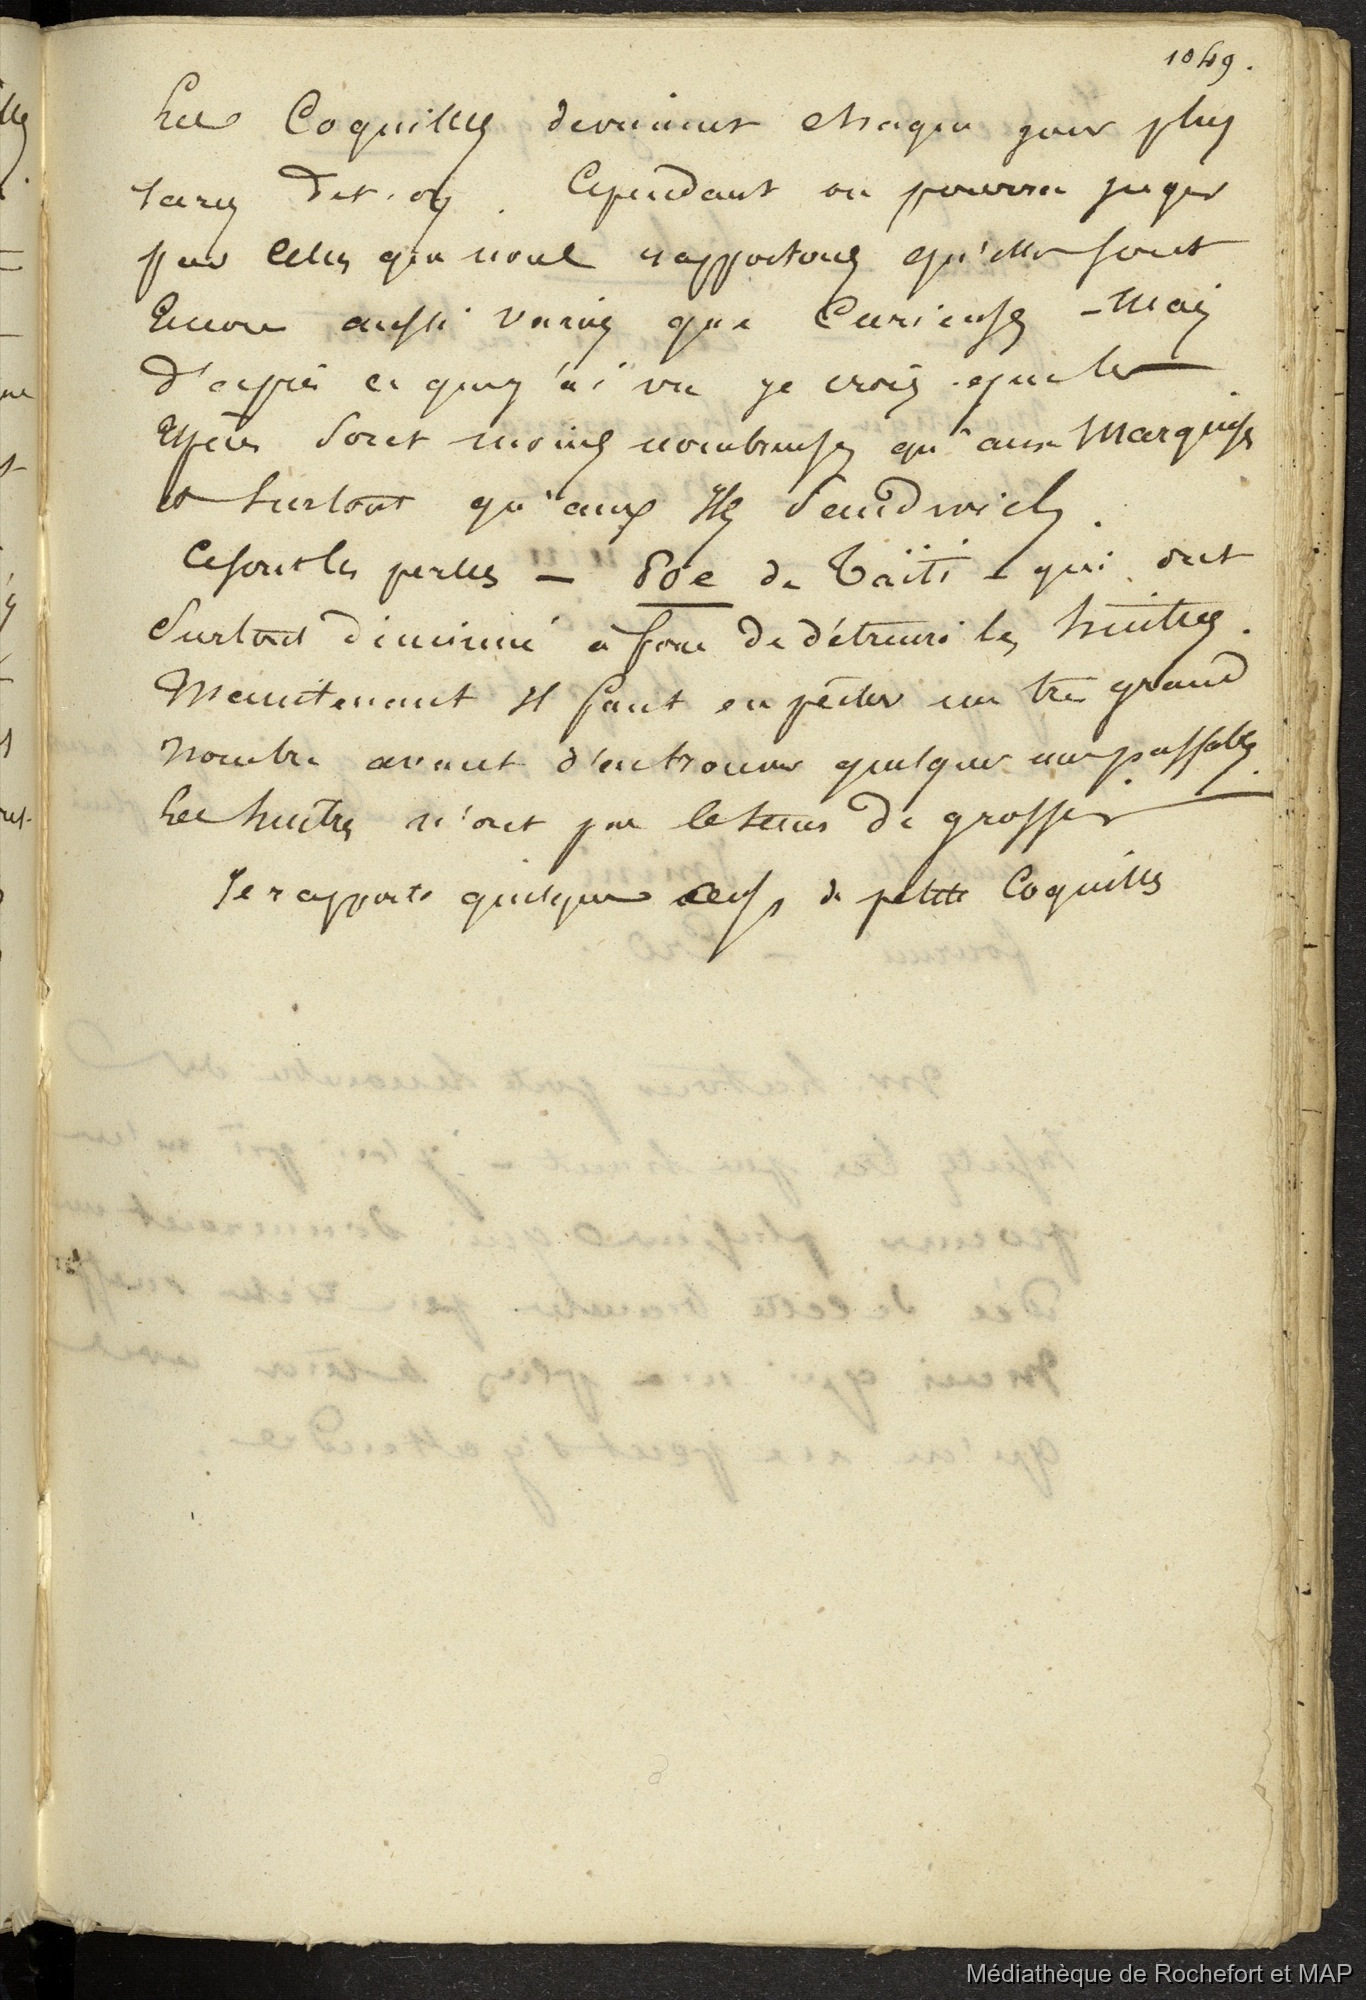 1049.
Les Coquilles deviennent chaque jour plus
rares dit-on. Cependant on pourra juger
par celles que nous rapportons qu'elles sont
Encore aussi variées que Curieuses - Mais
D'après ce que j'ai vu je crois que les
Espèces sont moins nombreuses qu'aux Marquises
et surtout qu'aux Iles Sandwich.
Ce sont les perles - Poe de Taïti - qui ont
Surtout diminué à force de détruire les huitres.
Maintenant il faut en pêcher un très grand
nombre avant d'en trouver quelques unes passables.
Les huitres n'ont pas le tems de grossir
Je rapporte quelques de petites Coquilles
Médiathèque de Rochefort et MAP